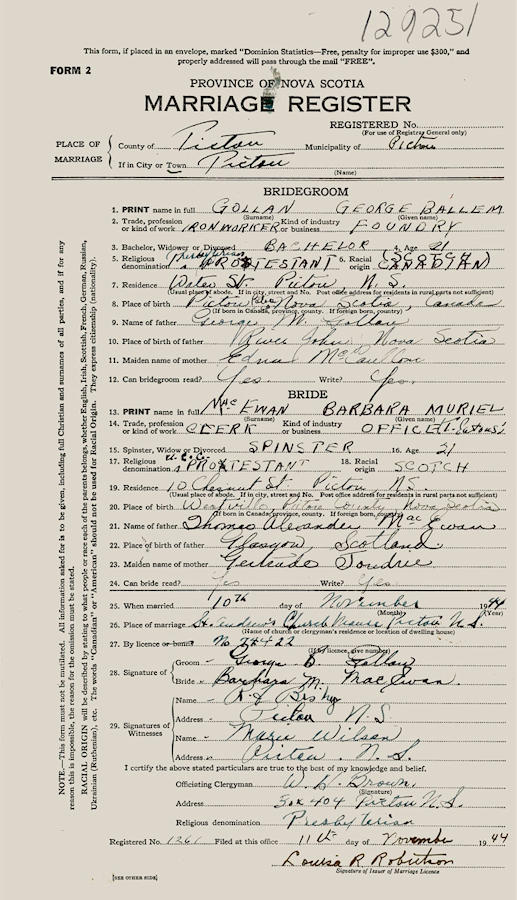 129251
This form, if placed in an envelope, marked "Dominion Statistics—Free, penalty for improper use $300," and
properly addressed will pass through the mail "FREE".
FORM 2
PROVINCE OF NOVA SCOTIA
MARRIAGE REGISTER
REGISTERED No.
(For use of Registrar General only)
PLACE OF MARRIAGE
County of Pictou Municipality of Pictou
If in City or Town Pictou
(Name)
BRIDEGROOM
1. PRINT name in full GOLLAN GEORGE BALLEM
(Surname) (Given name)
2. Trade, profession or kind of work IRONWORKER Kind of industry or business FOUNDRY
3. Bachelor, Widower or Divorced BACHELOR 4. Age 21
5. Religious denomination Presbyterian PROTESTANT 6. Racial origin SCOTCH CANADIAN
7. Residence Water St. Pictou N.S.
(Usual place of abode. If in city, street and No. Post office address for residents in rural parts not sufficient)
8. Place of birth Pictou Nova Scotia, Canada
(If born in Canada, province, county. If foreign born, country)
9. Name of father George M. Gollan
10. Place of birth of father River John, Nova Scotia
11. Maiden name of mother Edna
12. Can bridegroom read? Yes. Write? Yes.
BRIDE
13. PRINT name in full MacEWAN BARBARA MURIEL
(Surname) (Given name)
14. Trade, profession or kind of work CLERK Kind of industry or business OFFICE
15. Spinster, Widow or Divorced SPINSTER 16. Age 21
17. Religious denomination PROTESTANT 18. Racial origin SCOTCH
19. Residence 10 Chesnut St. Pictou N.S.
(Usual place of abode. If in city, street and No. Post office address for residents in rural parts not sufficient)
20. Place of birth Westville, Pictou County Nova Scotia
(If born in Canada, province, county. If foreign born, country)
21. Name of father Thomas Alexander MacEwan
22. Place of birth of father Glasgow, Scotland
23. Maiden name of mother Gertrude
24. Can bride read? Yes Write? Yes
25. When married 10th day of November 1944
(Monthly) (Year)
26. Place of marriage St. Andrew's Church Manse Pictou N.S.
(Name of church or clergyman's residence or location of dwelling house)
27. By licence or banns No 74422
(If by licence, give number)
28. Signature of
Groom George B. Gollan
Bride Barbara M. MacEwan.
29. Signatures of Witnesses
Name
Address Pictou N.S.
Name Marie Wilson
Address Pictou. N.S.
I certify the above stated particulars are true to the best of my knowledge and belief.
Officiating Clergyman W. H. Brown.
(Signature)
Address Box 404 Pictou N.S.
Religious denomination Presbyterian
Registered No. 1261 Filed at this office 11th day of November 1944
Louisa R Robertson
Signature of Issuer of Marriage Licence
[SEE OTHER SIDE]
NOTE.—This form must not be mutilated. All information asked for is to be given, including full Christian and surnames of all parties, and if for any
reason this is impossible, the reason for the omission must be stated.
RACIAL ORIGIN will be described by stating to what people or race each of the parents belongs, whether English, Irish, Scottish, French, German, Russian,
Ukrainian (Ruthenian), etc. The words "Canadian" or "American" should not be used for Racial Origin. They express citizenship (nationality).